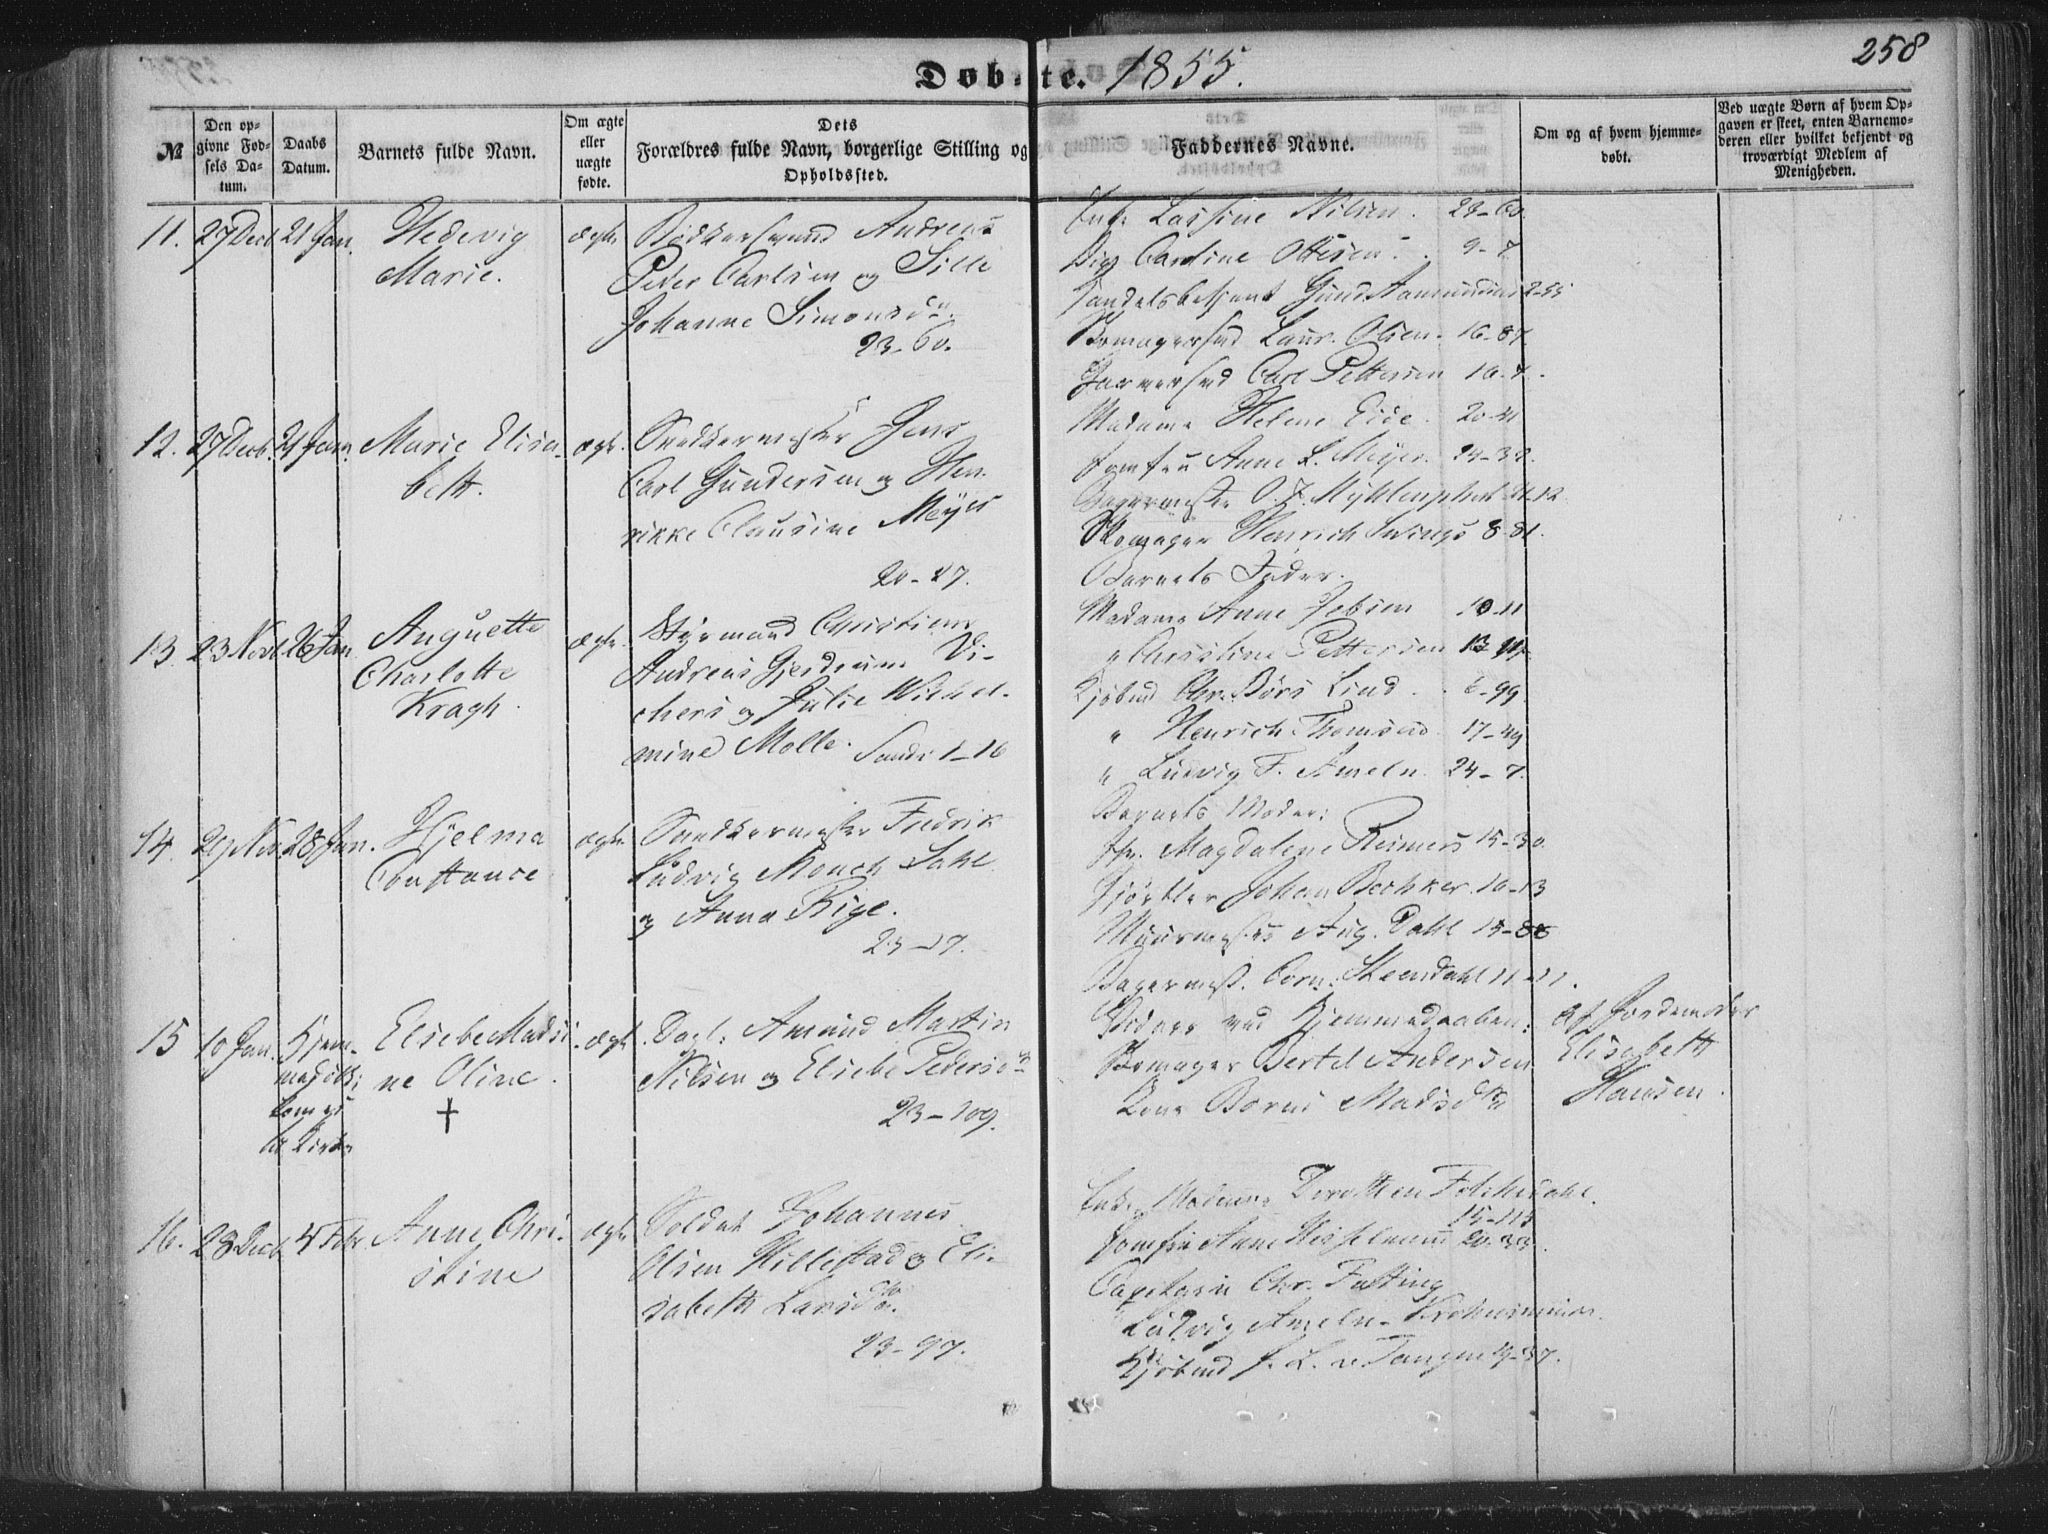 258
Døbte. 1855.
№
Den opgivne Fødsels Datum.
Daabs Datum.
Barnets fulde Navn.
Om ægte eller uægte fødte.
Dets Forældres fulde Navn, borgerlige Stilling og Opholdssted.
Faddernes Navne.
Om og af hvem hjemmedøbt.
Ved uægte Børn af hvem Opgaven er skeet, enten Barnemoderen eller hvilket bekjendt og troværdigt Medlem af Menigheden.
11. 27 Decb 21 Jan.
Hedevig
Marie.
ægte
Bødkersvend Andreas
Peter Carlsen og Sille
Johanne Simonsdn.
23-60.
Enke Lassine Nilsen. 23-60.
Pige Caroline Ottesen. 9-7
Handelsbetjent Gund. Aamundsen 2-55
Skomagersvd Laur. Olsen. 16-87
Farversvd Carl Pettersen 10-7.
12. 27 Decb. 21 Jan.
Marie Elisa-
beth.
ægte.
Snedkermester Jens
Carl Gundersen og Hen-
rikke Clausine Meyer
20-27.
Madame Helene Eide. 20-21
Jomfru Anne L. Meyer. 24-32.
Bagermester
Skomager Henrich 8-81.
Barnets Fader.
13. 23 Novb 26 Jan
Auguette
Charlotte
Kragh.
ægte.
Styrmand Christian
Andreas Gjerdrum Vi-
chers og Julie Wilhel-
mine Molle. Sands 1-16
Madame Anne Jebsen 10-11
" Christine Pettersen
Kjøbmd Chr. Børs Lind. 6-99.
" Henrich Thomsen 17-49
" Ludvig F. Ameln. 24-7.
14. 29 Nov 28 Jan.
Hjelma
Constance
ægte
Snedkermester Fredrik
Ludvig Monch Dahl
og Anna Rige.
23-17.
Barnets Moder:
Jfr. Magdalene Reimers 15-30.
Johan Bechker. 10-13
Muurmester Aug. Dahl 15-88
Bagermest. Corn. Steendahl 11-11.
15 10 Jan. Hjem-
medøbt;
Elisebe Madsi-
ne Oline.
†
ægte
Dagl. Amund Martin
Nilsen og Elisebe Pedersdn
23-109.
Vidner ved Hjemmedaaben:
Skomager Bertel Andersen
Kone Berni Madsdtr
Af Jordemoder
Elisebeth
Hansen.
16. 28 Decb 4 Febr.
Anne Chri-
stine
ægte
Soldat Johannes
Olsen Hillestad og Eli-
sabeth Larsdtr.
23-97.
Enke Madame Dorothea
15-113
Jomfru Anne Hesselmann 20-33.
Capitain Chr. Fasting
Ludvig Ameln
Kjøbmd J. L. v. Tangen 19-37.